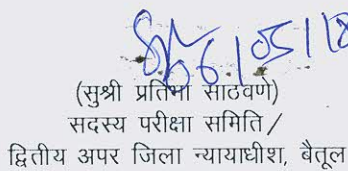 6/05/18
(सुश्री प्रतिभा साठवणे)
सदस्य परीक्षा समिति /
द्वितीय अपर जिला न्यायाधीश, बैतूल